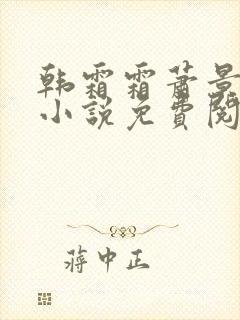 韩霜霜萧景
小说免费阅
蒋中正